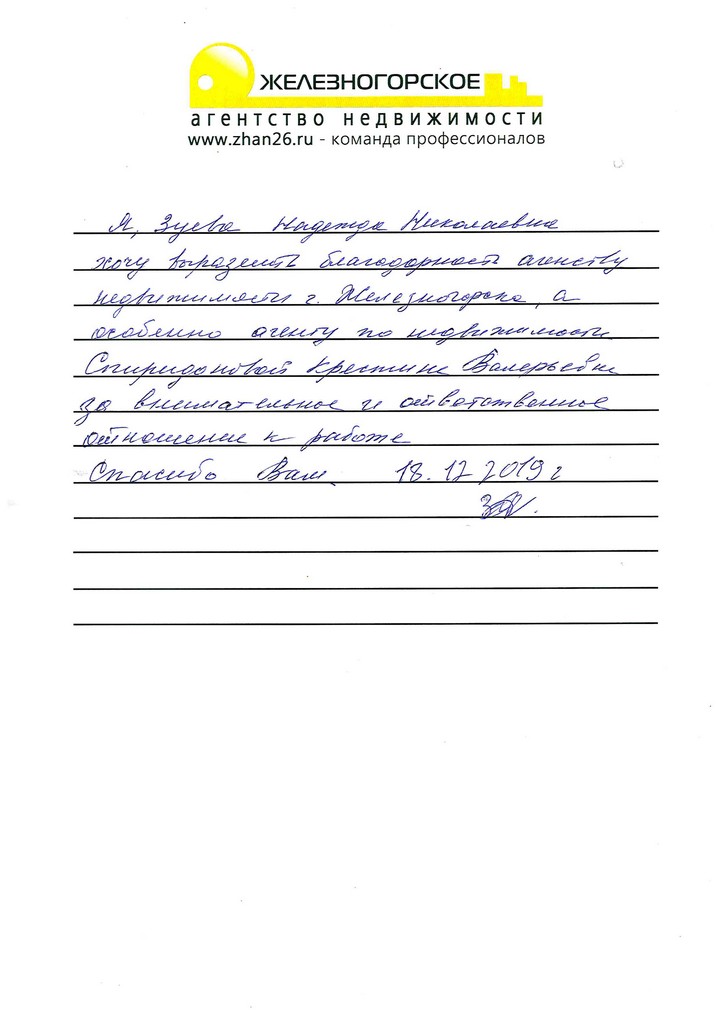 ЖЕЛЕЗНОГОРСКОЕ
агентство недвижимости
www.zhan26.ru - команда профессионалов
Я, Зуева Надежда Николаевна
хочу выразить благодарность агенству
недвижимости г. Железногорска, а
особенно агенту по недвижимости
Спиридоновой Кристине Валерьевне
за внимательное и ответственное
отношение к работе
Спасибо Вам. 18.12 2019 г